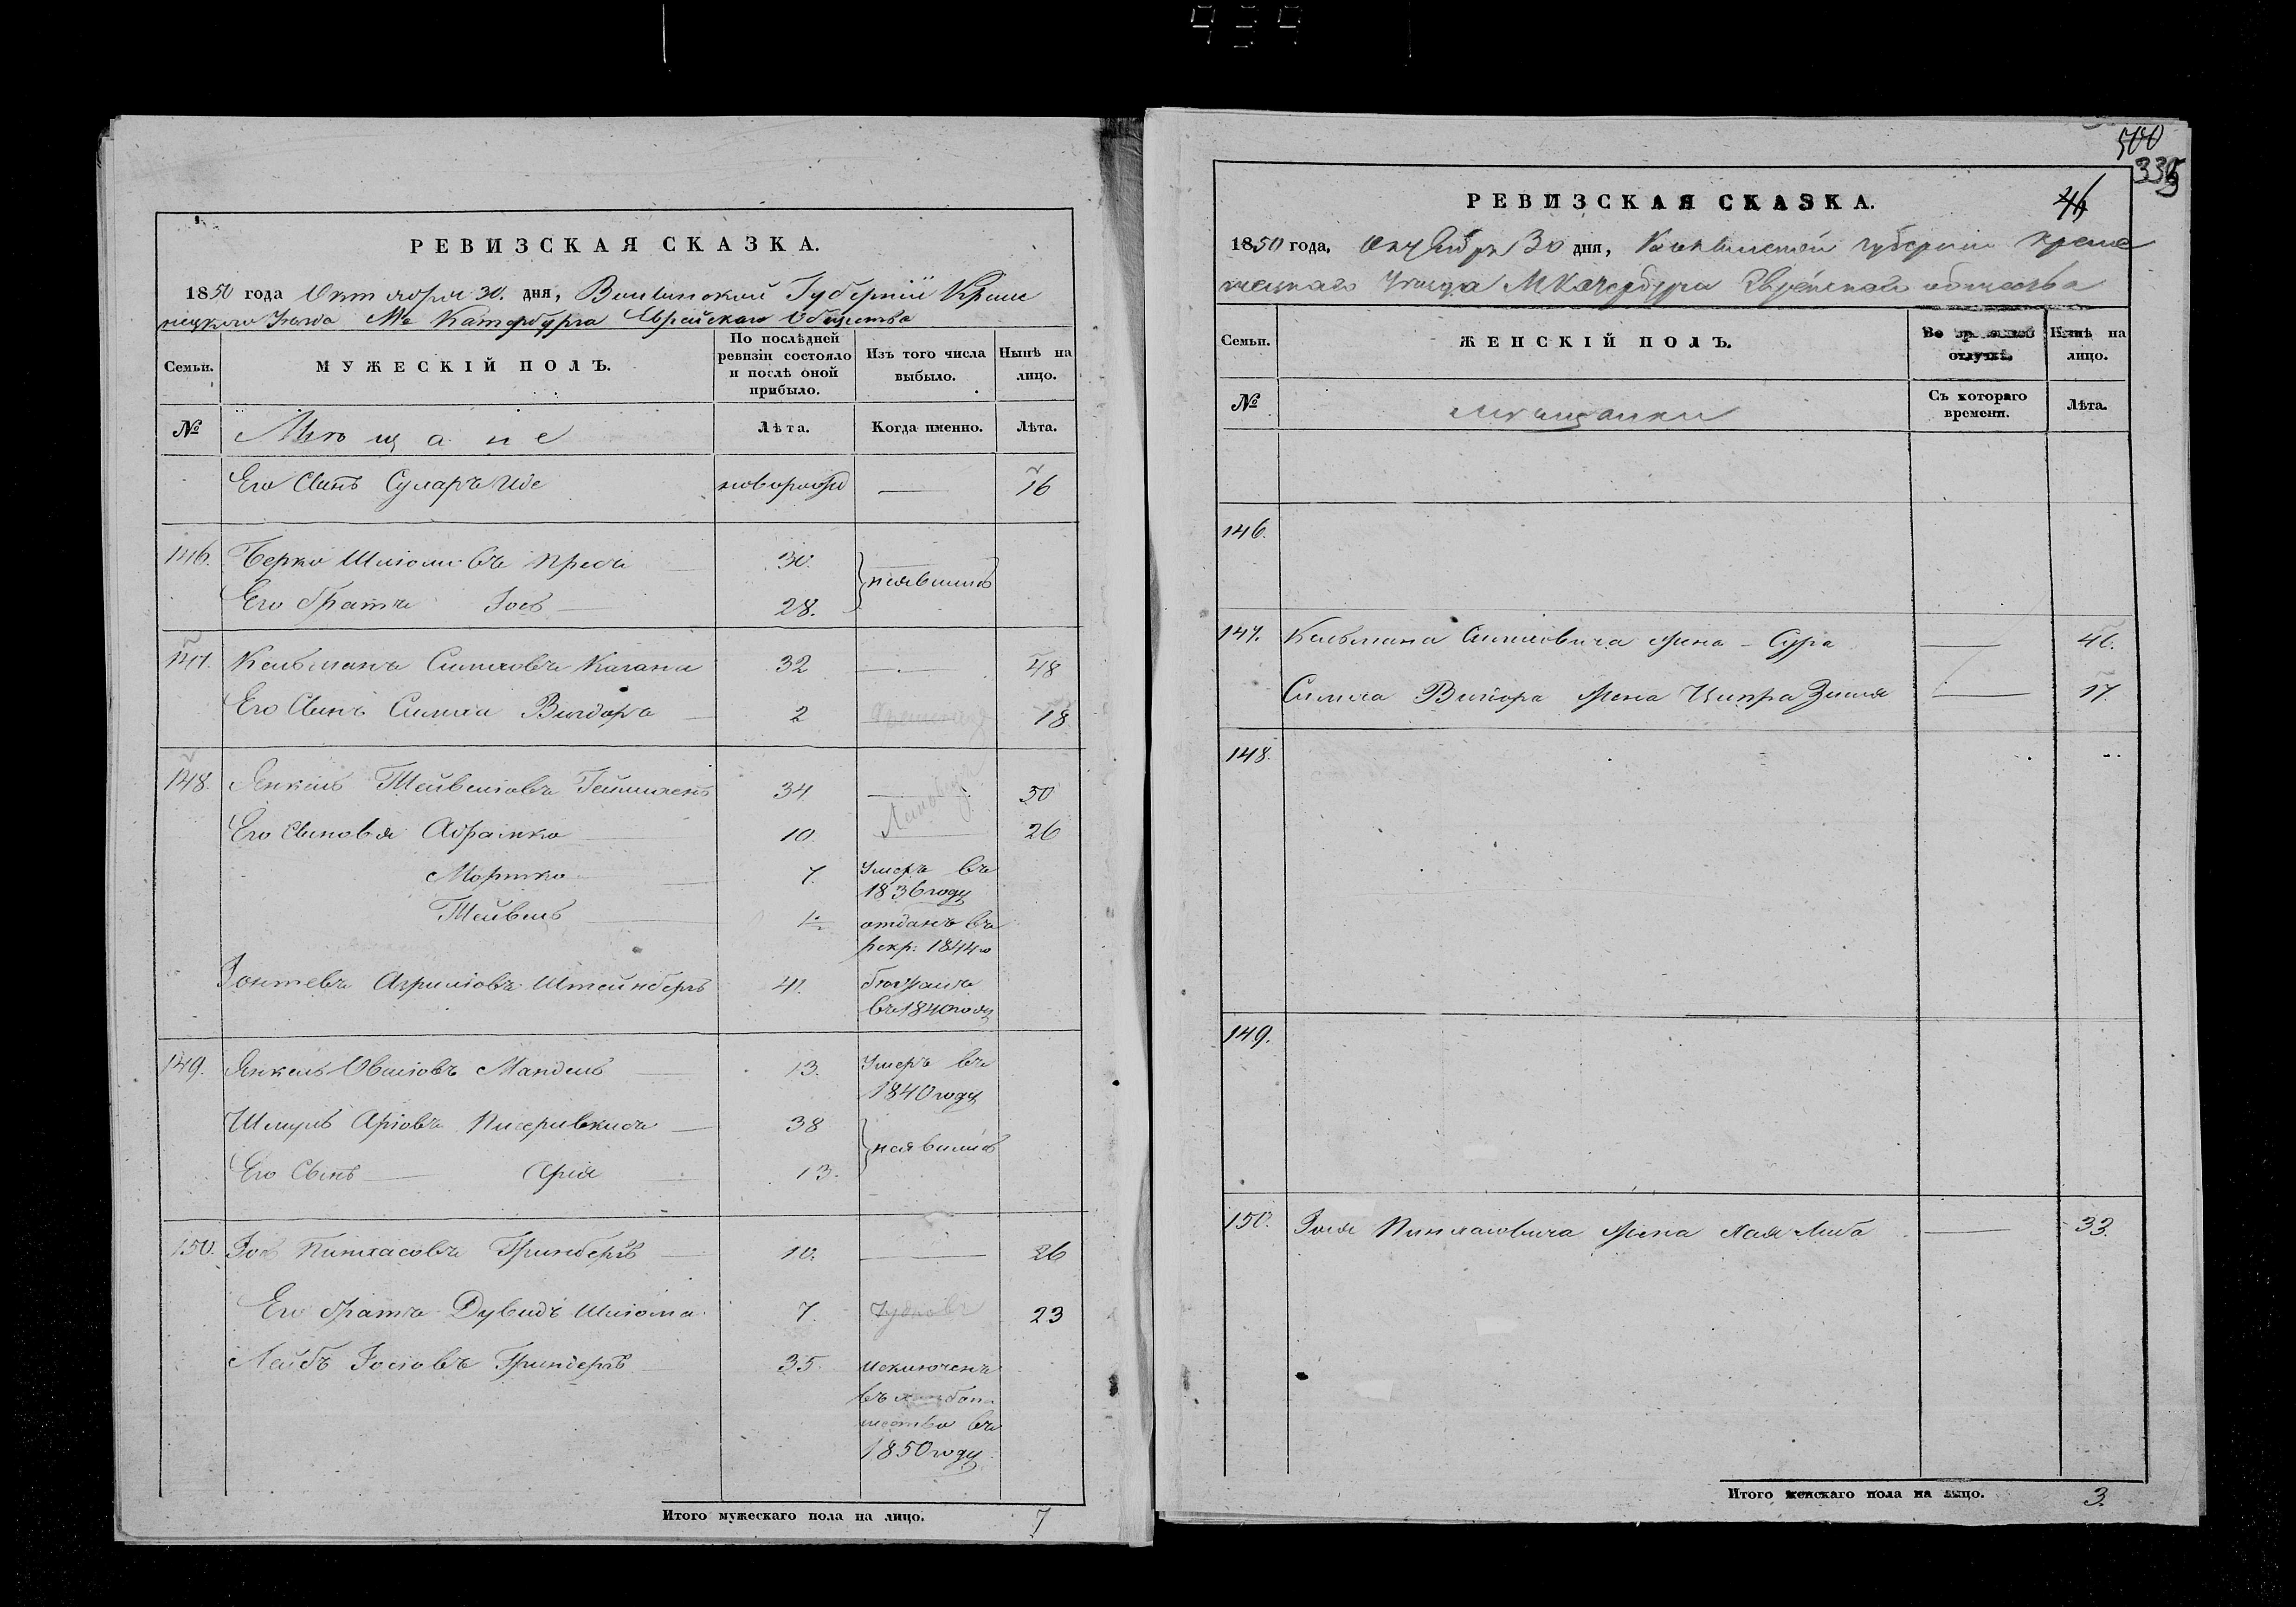 РЕВИЗСКАЯ СКАЗКА.
1850 года Октября 30. дня, Волынской Губернии Креме
нецкаго Уезда Мка Катербурга Еврейскаго Общества
Семьи.
МУЖЕСКІЙ ПОЛЪ.
По послѣдней ревизіи состояло и послѣ оной прибыло.
Изъ того числа выбыло.
Нынѣ на лицо.
№
Мѣщане
Лѣта.
Когда именно.
Лѣта.
Его Сынъ — 16
146. Берко Шліомовъ 30. неявились
Его братъ Іось 28.
147. Кельманъ Симховъ Каганъ 32 — 48
Его Сынъ Симха Вигдоръ 2 18
148. Янкель Тейвелiовъ 34 — 50
Его Сыновья Абрамко 10. — 26
Мортко 7. Умеръ въ
1836 году
Тейвель 1½ отданъ въ
рекр: 1844 го
Штейнбергъ 41.
въ 1840 году
149. Янкель Мандель 13. Умеръ въ
1840 году
Шмуль Аріовъ 38 неявились
Его Сынъ Арія 13.
150. Іось Пинхасовъ Гринбергъ 10. — 26
Его братъ Дувидъ Шліома 7. 23
Лейбъ Іосіовъ Гринбергъ 35. исключенъ
въ
въ
1850 году
Итого мужескаго пола на лицо. 7
500
335
46
РЕВИЗСКАЯ СКАЗКА.
1850 года, Октября 30 дня, Волынской губерніи Креме
нецкаго Уезда М Катербурга Еврейскаго общества
Семьи.
ЖЕНСКІЙ ПОЛЪ.
Во временной отлучкѣ.
Нынѣ на лицо.
№
Мѣщанки
Съ котораго времени.
Лѣта.
146.
147. Кельмана Симховича жена - Сура — 46.
Симха Вигдора жена Ципра Зисля — 17.
148.
149.
150. Іося Пинхасовича жена Хая Либа — 33.
Итого женскаго пола на лицо. 3.